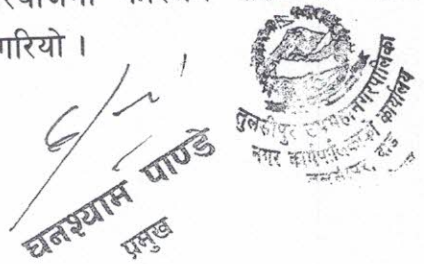 गरियो ।
घनश्याम पाण्डे
प्रमुख
तुलसीपुर उपमहानगरपालिका
नगर कार्यपालिकाको कार्यालय
तुलसीपुर, दाङ